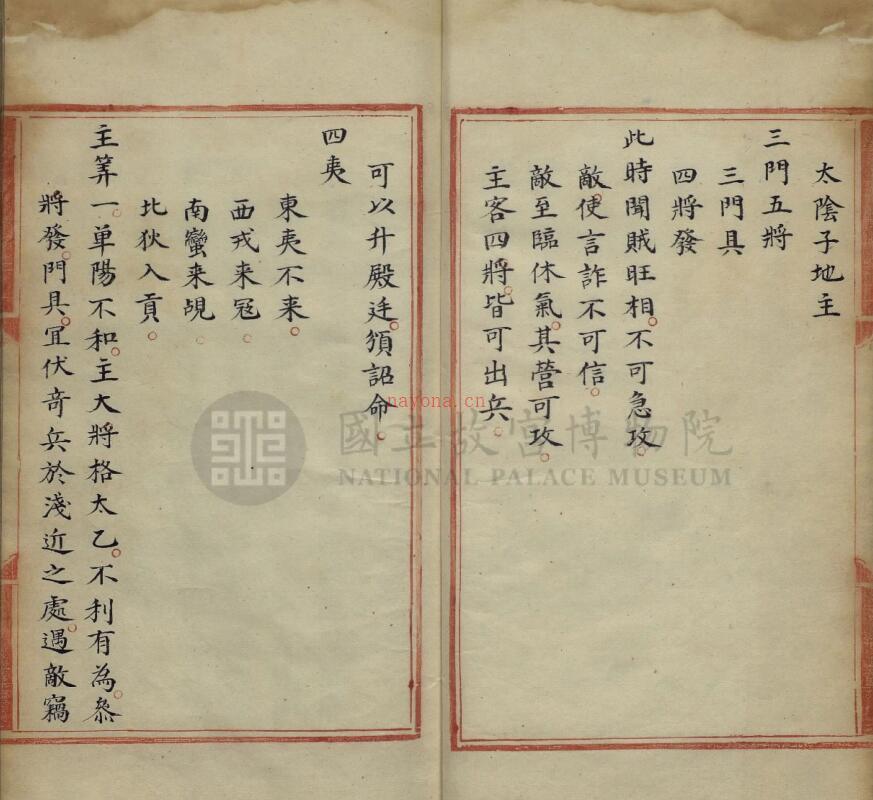 太陰子地主
三門五將
三門具
四將發
此時聞賊旺相。不可急攻。
敵使言詐不可信。
敵至臨休氣。其營可攻。
主客四將。皆可出兵。
可以升殿廷。頒詔命。
四夷
東夷不来。
西戎来冦。
南蠻来覘。
北狄入貢。
主筭一。单陽不和。主大將格太乙。不利有為。叅
將發。門具。宜伏竒兵於淺近之處。遇敵竊
nayona.cn
國立故宮博物院
NATIONAL PALACE MUSEUM